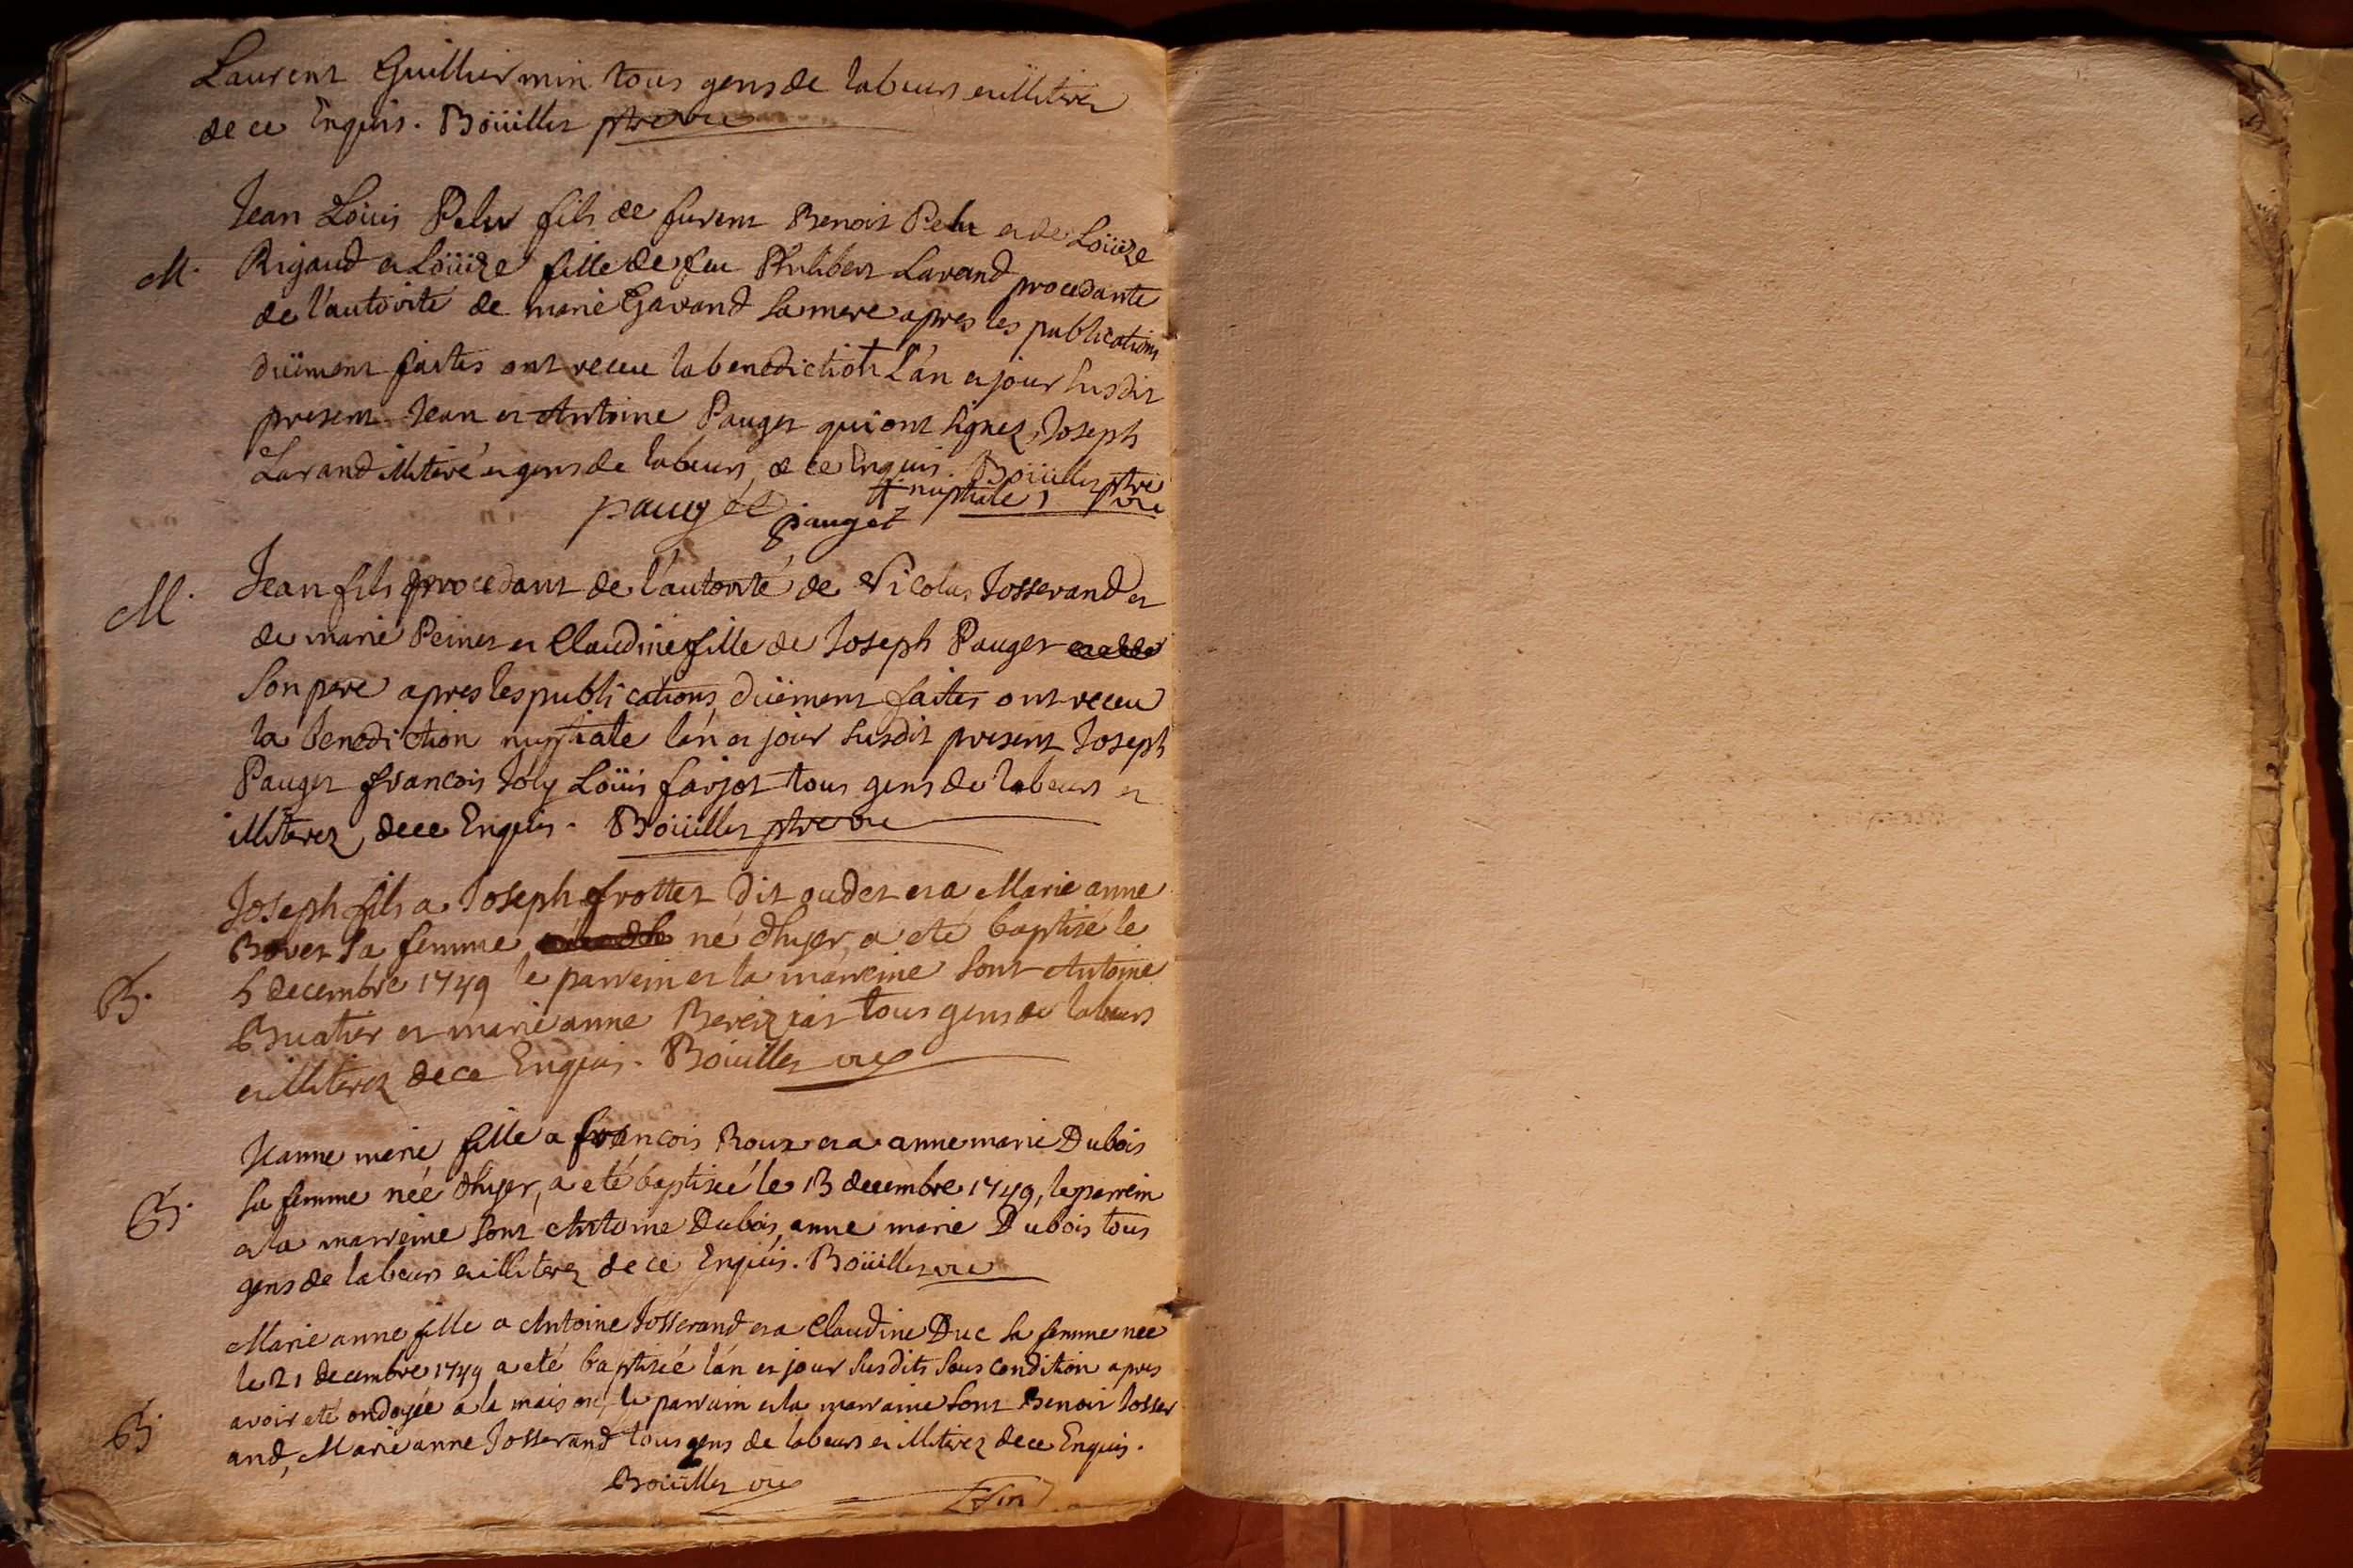 Laurent Guilliermin tous gens de labeurs et illiterez
de ce Enquis. Boüillet ptre vic
Jean Loüis Pelu fils de furent Benoit Pelu et de Loüize
M. Rigaud et Loüize fille de feu Philibert Lavand procedante
de l'autorité de marie Gavand sa mere apres les publications
düement faites ont receu la benediction ⼗ L'an et jour susdit
present Jean et Antoine Pauget qui ont signez, Joseph
Lavand illiteré et gens de labeurs, de ce Enquis. Boüillet ptre
⼗ nuptiale, vic
pauget
pauget
M. Jean fils procedant de l'autorité de Nicolas Josserand et
de marie Peinet et Claudine fille de Joseph Pauget
son pere apres les publications düement faites ont receu
la benediction nuptiale l'an et jour susdit present Joseph
Pauget francois Joly Loüis farjot tous gens de labeurs et
illiterez, de ce Enquis. Boüillet ptre vic
Joseph fils a Joseph frottet dit oudet et a Marie anne
Bovet sa femme né d'hyer, a eté baptizé le
B. 5 decembre 1749 le parrein et la marreine sont Antoine
Buatier et marie anne tous gens de labeurs
et illiterez de ce Enquis. Boüillet vic
Jeanne marie fille a francois Roux et a anne marie Dubois
B. sa femme née d'hyer, a eté baptizée le 13 decembre 1749, le parrein
et la marreine sont Antoine Dubois, anne marie Dubois tous
gens de labeurs et illiterez de ce Enquis. Boüillet vic
Marie anne fille a Antoine Josserand et a Claudine Duc sa femme née
le 21 decembre 1749 a eté baptizée l'an et jour susdits sous condition apres
B. avoir eté ondoyée a la maison, le parrain et la marraine sont Benoit Josser
and, Marie anne Josserand tous gens de labeurs et illiterez de ce Enquis.
Boüillet vic
Fin